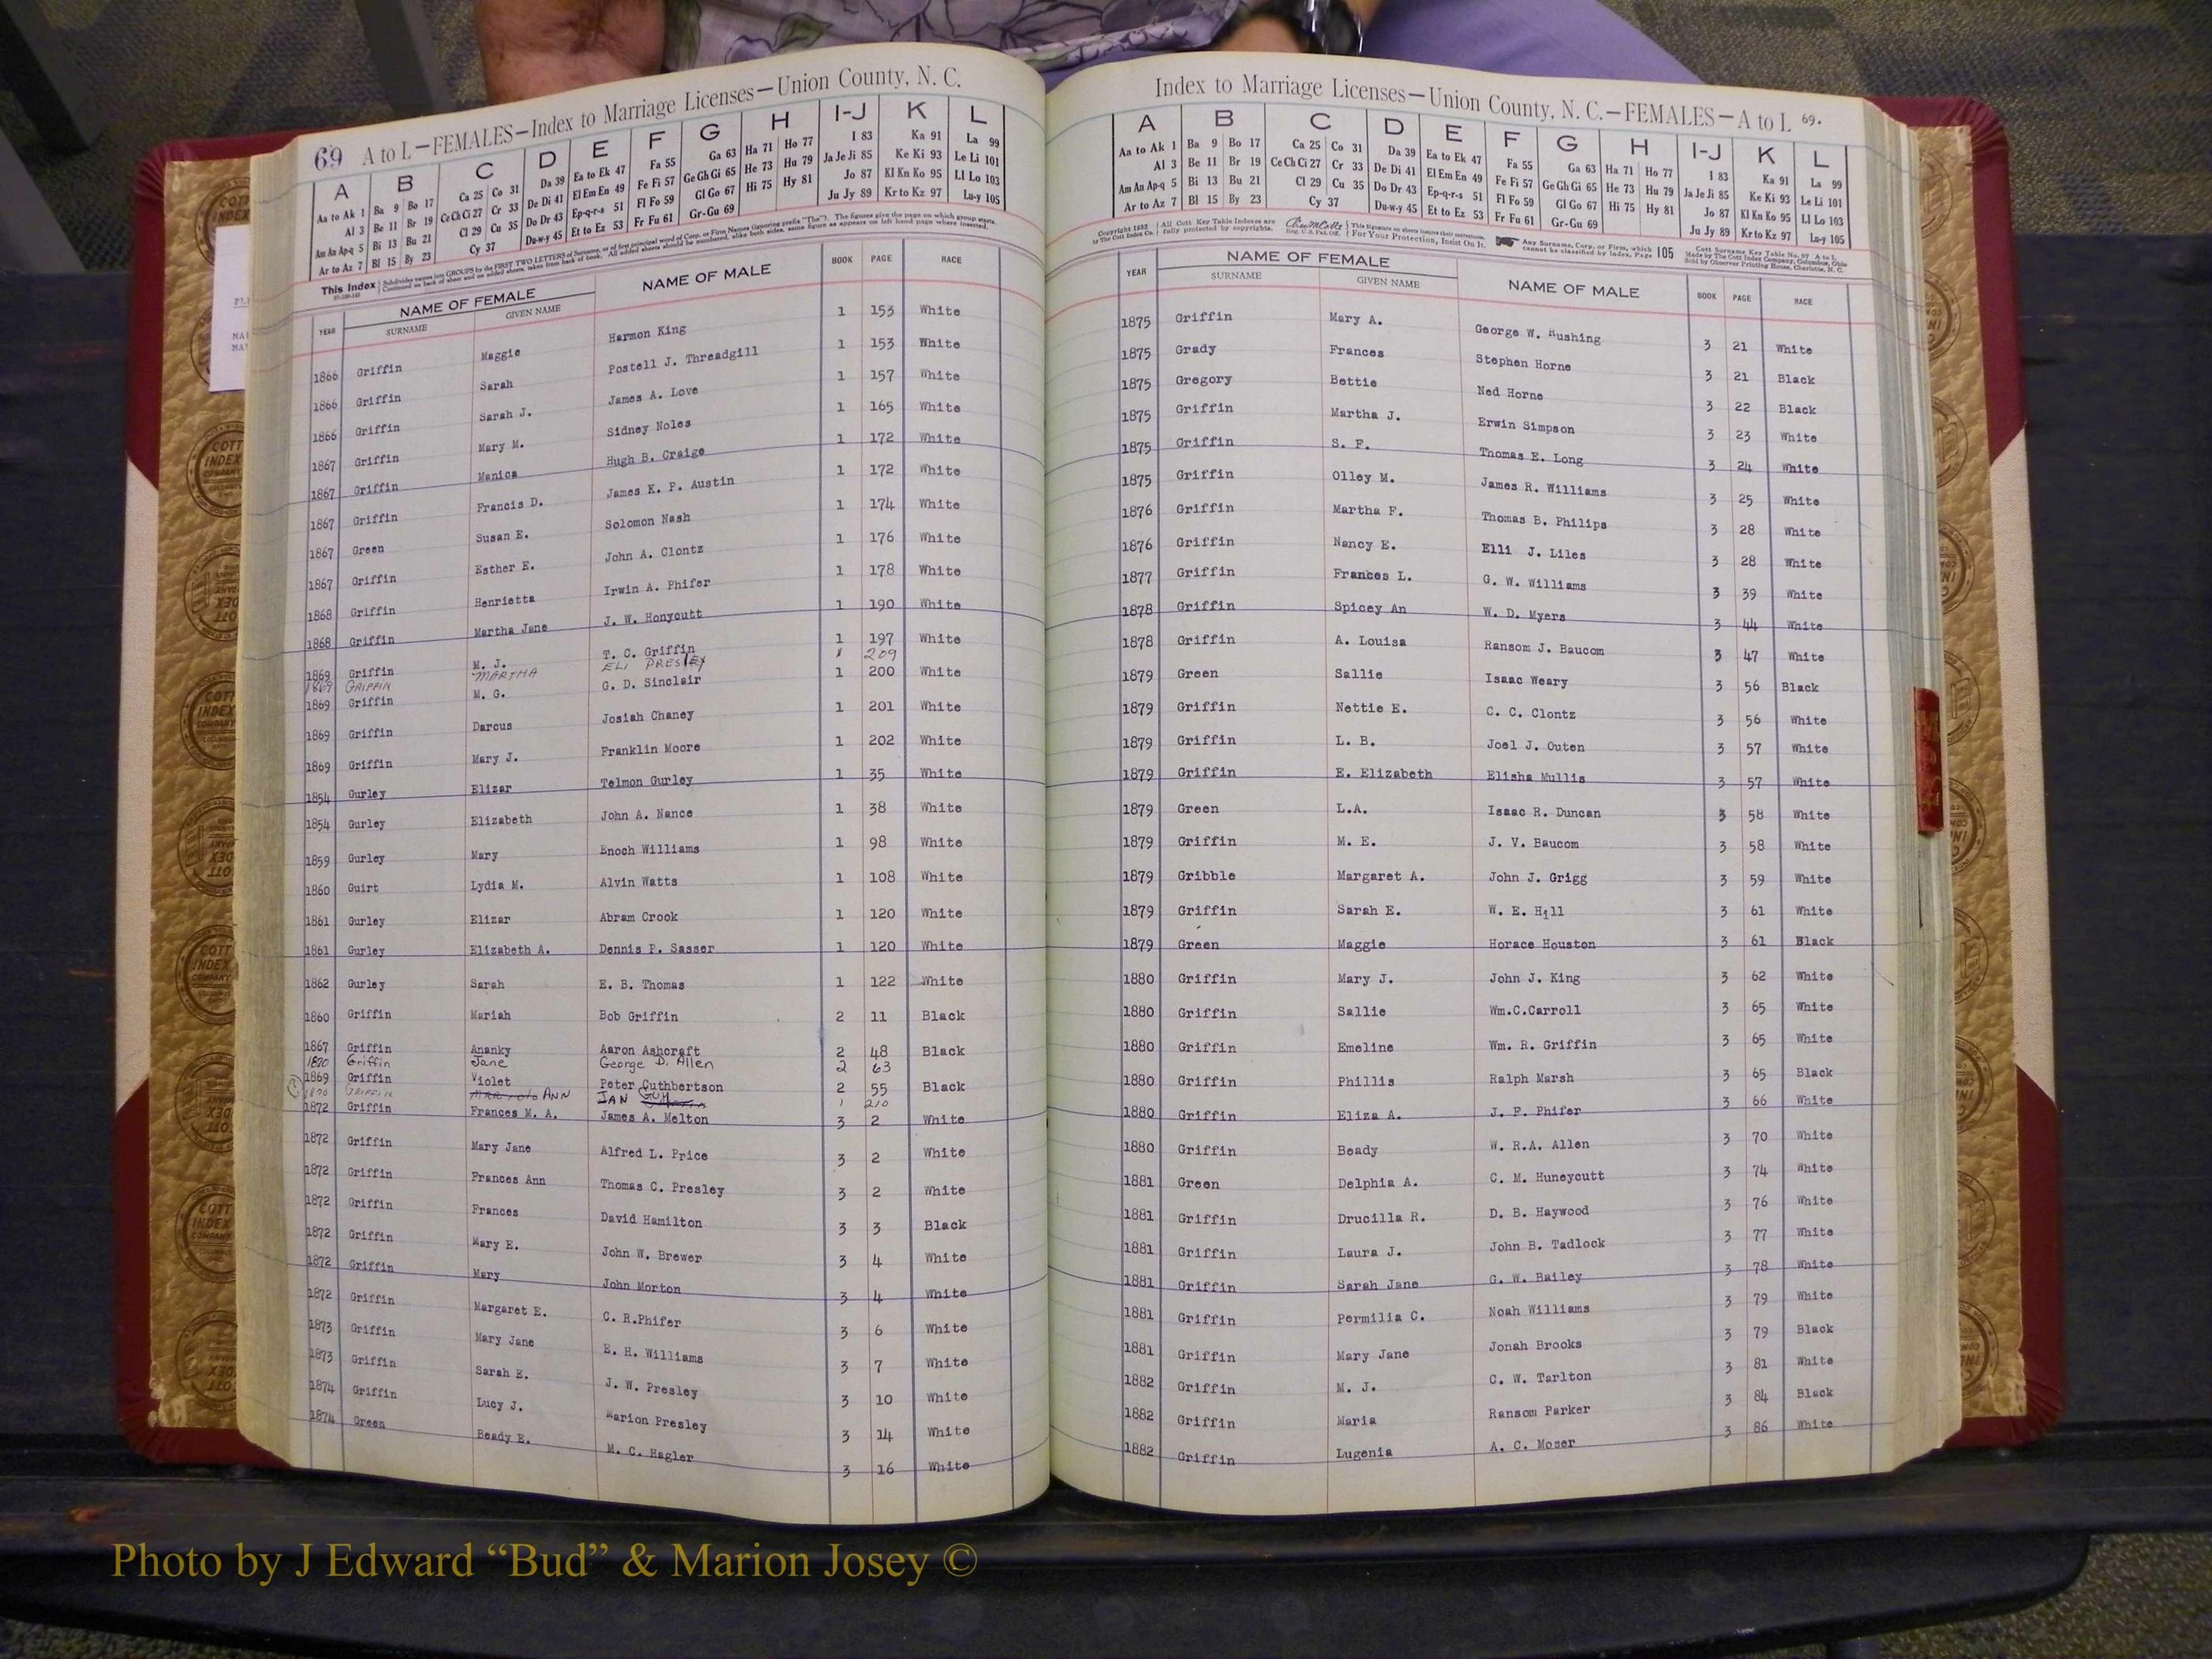 69 A to L—FEMALES—Index to Marriage Licenses—Union County, N. C.
A B C D E F G H I-J K L
Aa to Ak 1 Ba 9 Bo 17 Ca 25 Co 31 Da 39 Ea to Ek 47 Fa 55 Ga 63 Ha 71 Ho 77 I 83 Ka 91 La 99
Al 3 Be 11 Br 19 Ce Ch Ci 27 Cr 33 De Di 41 El Em En 49 Fe Fi 57 Ge Gh Gi 65 He 73 Hu 79 Ja Je Ji 85 Ke Ki 93 Le Li 101
Am An Ap-q 5 Bi 13 Bu 21 Cl 29 Cu 35 Do Dr 43 Ep-q-r-s 51 Fl Fo 59 Gl Go 67 Hi 75 Hy 81 Jo 87 Kl Kn Ko 95 Ll Lo 103
Ar to Az 7 Bl 15 By 23 Cy 37 Du-w-y 45 Et to Ez 53 Fr Fu 61 Gr-Gu 69 Ju Jy 89 Kr to Kz 97 Lu-y 105
This Index
YEAR NAME OF FEMALE NAME OF MALE BOOK PAGE RACE
SURNAME GIVEN NAME
1866 Griffin Maggie Harmon King 1 153 White
1866 Griffin Sarah Postell J. Threadgill 1 153 White
1866 Griffin Sarah J. James A. Love 1 157 White
1867 Griffin Mary M. Sidney Noles 1 165 White
1867 Griffin Manica Hugh B. Craige 1 172 White
1867 Griffin Francis D. James K. P. Austin 1 172 White
1867 Green Susan E. Solomon Nash 1 174 White
1867 Griffin Esther E. John A. Clontz 1 176 White
1868 Griffin Henrietta Irwin A. Phifer 1 178 White
1868 Griffin Martha Jane J. W. Honycutt 1 190 White
1869 Griffin M. J. T. C. Griffin 1 197 White
1869 GRIFFIN MARTHA ELI PRESLEY 1 209
1869 Griffin M. G. G. D. Sinclair 1 200 White
1869 Griffin Darcus Josiah Chaney 1 201 White
1869 Griffin Mary J. Franklin Moore 1 202 White
1854 Gurley Elizar Telmon Gurley 1 35 White
1854 Gurley Elizabeth John A. Nance 1 38 White
1859 Gurley Mary Enoch Williams 1 98 White
1860 Guirt Lydia M. Alvin Watts 1 108 White
1861 Gurley Elizar Abram Crook 1 120 White
1861 Gurley Elizabeth A. Dennis P. Sasser 1 120 White
1862 Gurley Sarah E. B. Thomas 1 122 White
1860 Griffin Mariah Bob Griffin 2 11 Black
1867 Griffin Ananky Aaron Ashcraft 2 48 Black
1870 Griffin Jane George D. Allen 2 63
1869 Griffin Violet Peter Cuthbertson 2 55 Black
1870 GRIFFIN ANN 1 210
1872 Griffin Frances M. A. James A. Melton 3 2 White
1872 Griffin Mary Jane Alfred L. Price 3 2 White
1872 Griffin Frances Ann Thomas C. Presley 3 2 White
1872 Griffin Frances David Hamilton 3 3 Black
1872 Griffin Mary E. John W. Brewer 3 4 White
1872 Griffin Mary John Morton 3 4 White
1872 Griffin Margaret E. C. R.Phifer 3 6 White
1873 Griffin Mary Jane E. H. Williams 3 7 White
1873 Griffin Sarah E. J. W. Presley 3 10 White
1874 Griffin Lucy J. Marion Presley 3 14 White
1874 Green Beady E. M. C. Hagler 3 16 White
Index to Marriage Licenses—Union County, N. C.—FEMALES—A to L 69.
A B C D E F G H I-J K L
Aa to Ak 1 Ba 9 Bo 17 Ca 25 Co 31 Da 39 Ea to Ek 47 Fa 55 Ga 63 Ha 71 Ho 77 I 83 Ka 91 La 99
Al 3 Be 11 Br 19 Ce Ch Ci 27 Cr 33 De Di 41 El Em En 49 Fe Fi 57 Ge Gh Gi 65 He 73 Hu 79 Ja Je Ji 85 Ke Ki 93 Le Li 101
Am An Ap-q 5 Bi 13 Bu 21 Cl 29 Cu 35 Do Dr 43 Ep-q-r-s 51 Fl Fo 59 Gl Go 67 Hi 75 Hy 81 Jo 87 Kl Kn Ko 95 Ll Lo 103
Ar to Az 7 Bl 15 By 23 Cy 37 Du-w-y 45 Et to Ez 53 Fr Fu 61 Gr-Gu 69 Ju Jy 89 Kr to Kz 97 Lu-y 105
All Cott Key Table Indexes are fully protected by copyrights. For Your Protection, Insist On It. Any Surname, Corp. or Firm, which cannot be classified by Index, Page 105
YEAR NAME OF FEMALE NAME OF MALE BOOK PAGE RACE
SURNAME GIVEN NAME
1875 Griffin Mary A. George W. Rushing 3 21 White
1875 Grady Frances Stephen Horne 3 21 Black
1875 Gregory Bettie Ned Horne 3 22 Black
1875 Griffin Martha J. Erwin Simpson 3 23 White
1875 Griffin S. F. Thomas E. Long 3 24 White
1875 Griffin Olley M. James R. Williams 3 25 White
1876 Griffin Martha F. Thomas B. Philips 3 28 White
1876 Griffin Nancy E. Elli J. Liles 3 28 White
1877 Griffin Frances L. G. W. Williams 3 39 White
1878 Griffin Spicey An W. D. Myers 3 44 White
1878 Griffin A. Louisa Ransom J. Baucom 3 47 White
1879 Green Sallie Isaac Weary 3 56 Black
1879 Griffin Nettie E. C. C. Clontz 3 56 White
1879 Griffin L. B. Joel J. Outen 3 57 White
1879 Griffin E. Elizabeth Elisha Mullis 3 57 White
1879 Green L.A. Isaac R. Duncan 3 58 White
1879 Griffin M. E. J. V. Baucom 3 58 White
1879 Gribble Margaret A. John J. Grigg 3 59 White
1879 Griffin Sarah E. W. E. Hill 3 61 White
1879 Green Maggie Horace Houston 3 61 Black
1880 Griffin Mary J. John J. King 3 62 White
1880 Griffin Sallie Wm.C.Carroll 3 65 White
1880 Griffin Emeline Wm. R. Griffin 3 65 White
1880 Griffin Phillis Ralph Marsh 3 65 Black
1880 Griffin Eliza A. J. F. Phifer 3 66 White
1880 Griffin Beady W. R.A. Allen 3 70 White
1881 Green Delphia A. C. M. Huneycutt 3 74 White
1881 Griffin Drucilla R. D. B. Haywood 3 76 White
1881 Griffin Laura J. John B. Tadlock 3 77 White
1881 Griffin Sarah Jane G. W. Bailey 3 78 White
1881 Griffin Permilia C. Noah Williams 3 79 White
1881 Griffin Mary Jane Jonah Brooks 3 79 Black
1882 Griffin M. J. C. W. Tarlton 3 81 White
1882 Griffin Maria Ransom Parker 3 84 Black
1882 Griffin Lugenia A. C. Moser 3 86 White
Photo by J Edward “Bud” & Marion Josey ©